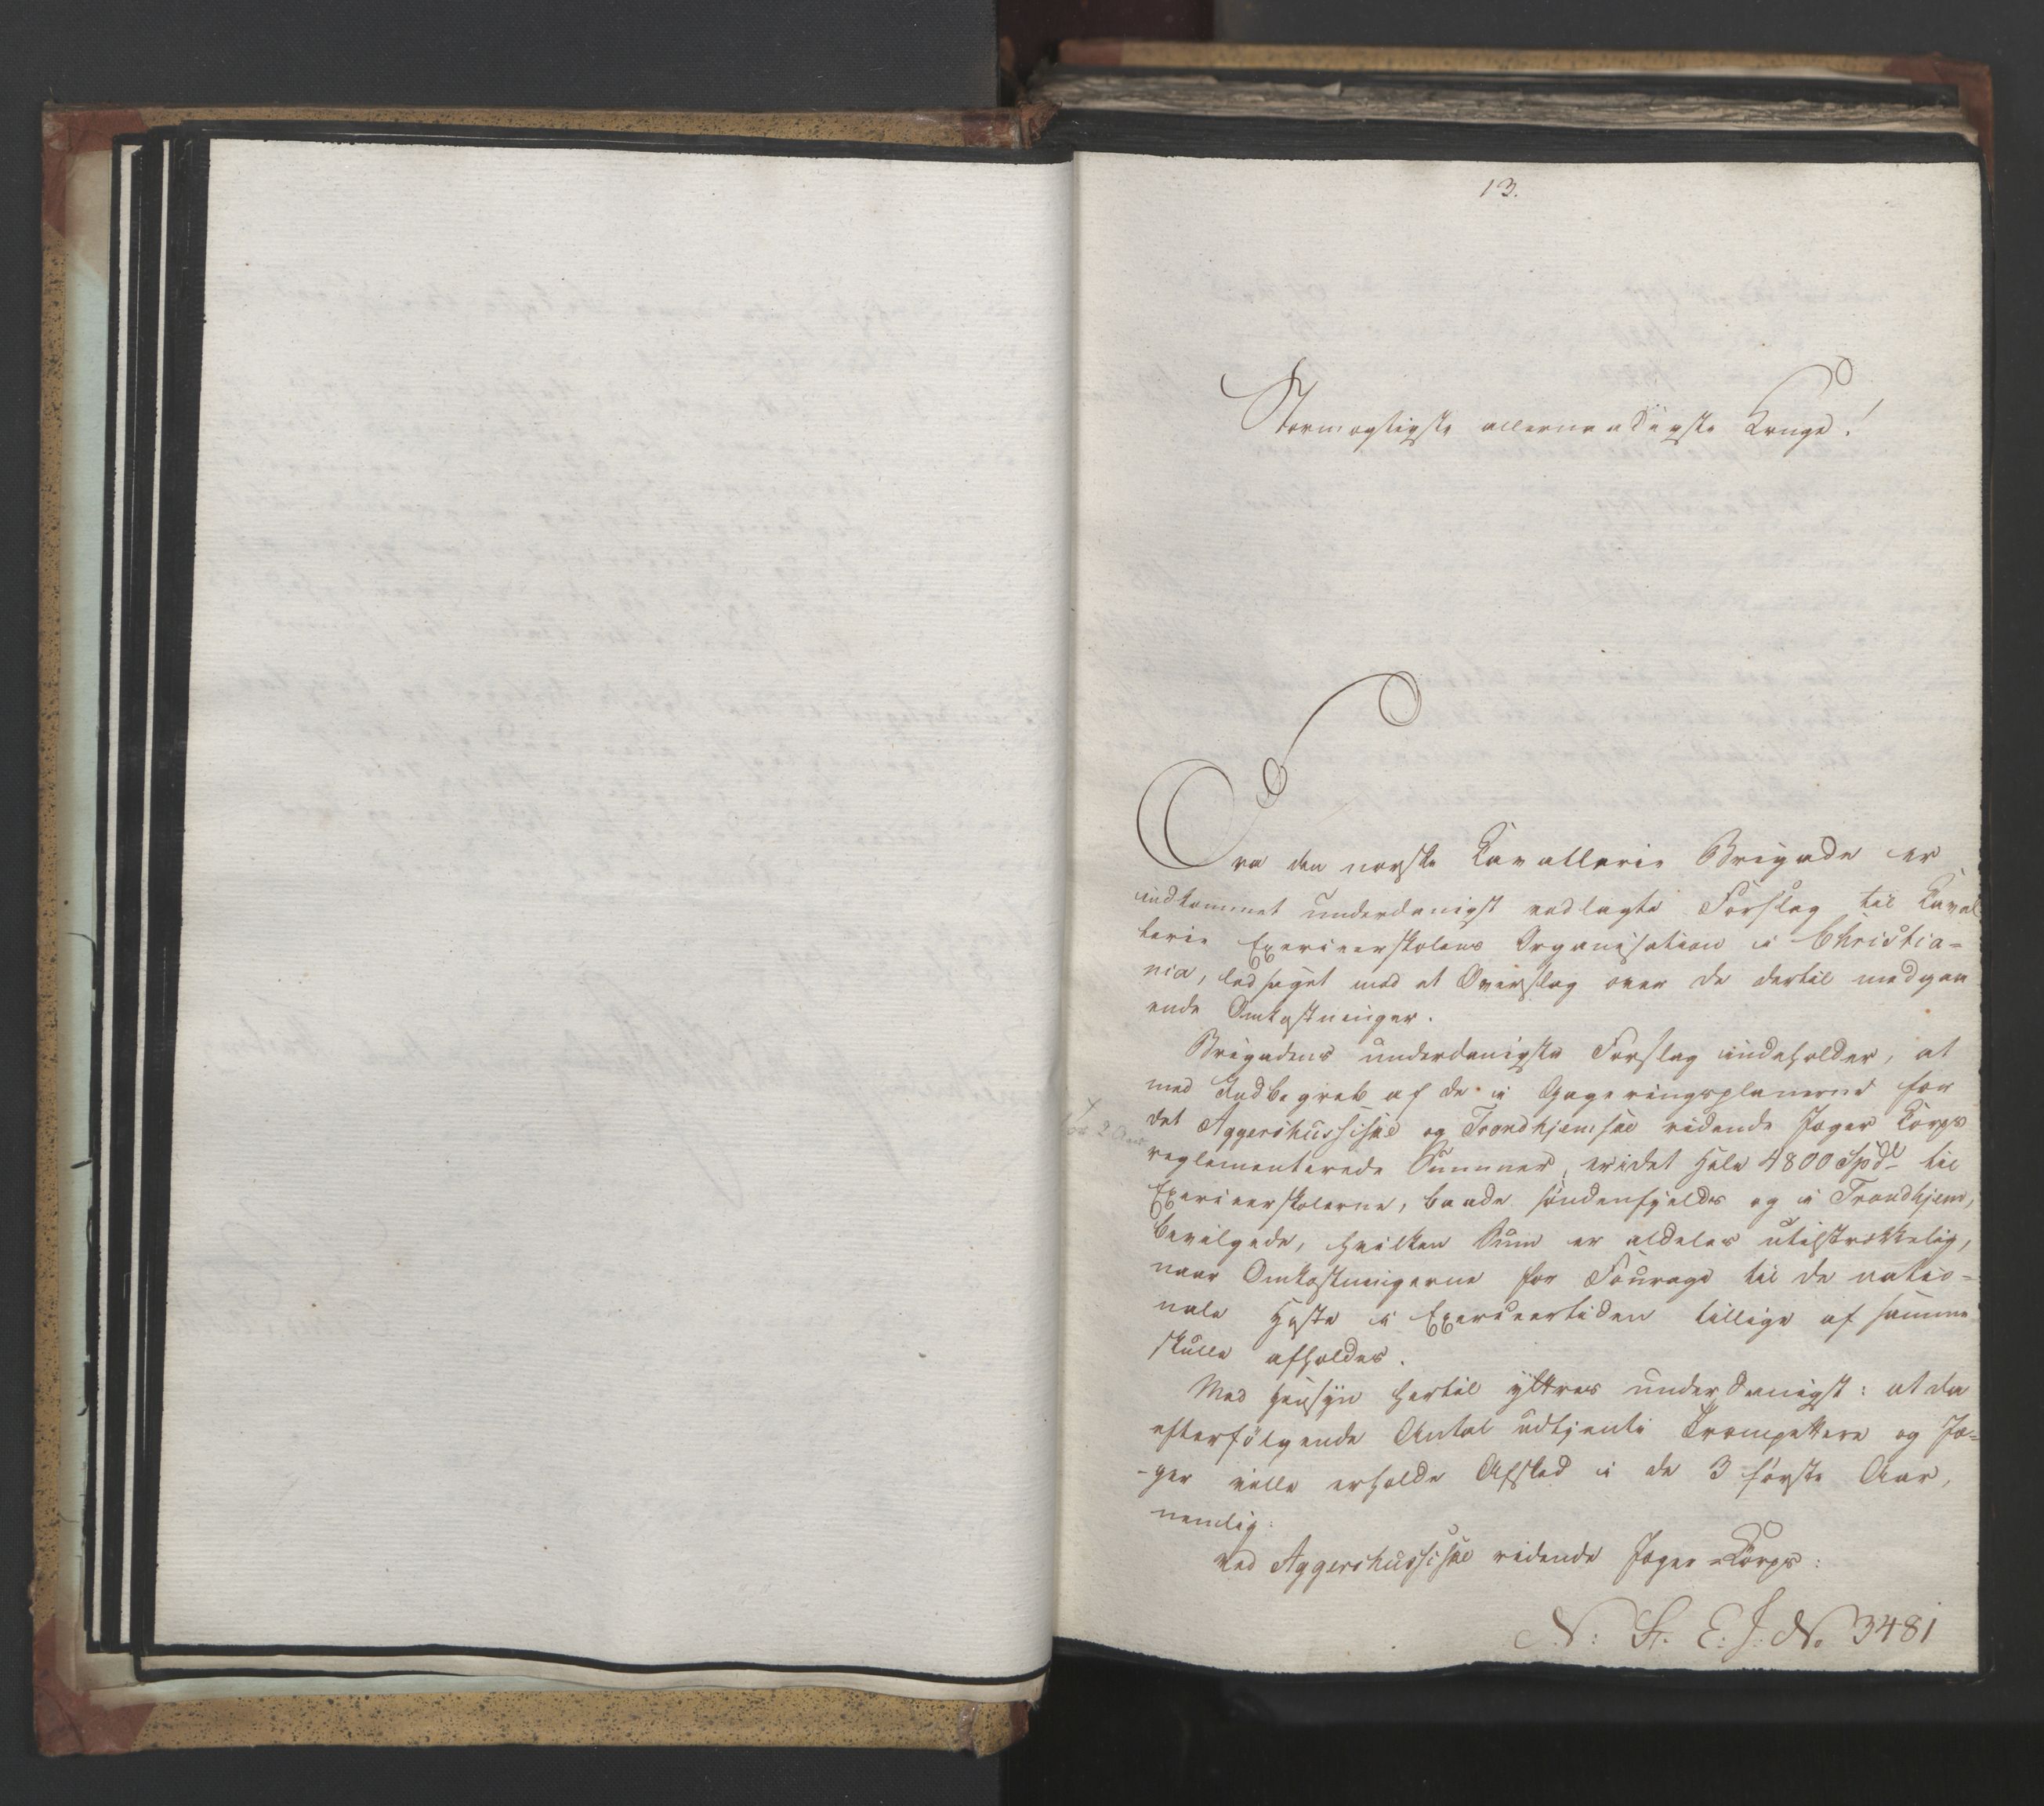 13.
Stormægtigste allernaadigste Konge!
Fra den norske Cavallerie Brigade er
indkommet underdanigst vedlagte Forslag til Caval
lerie Exerceerskolens Organisation i Christia=
nia, ledsaget med et Overslag over de dertil medgaa
ende Omkostninger.
Brigadens underdanigste Forslag indeholder, at
med Indbegreb af de i Gageringsplanerne for
det Aggershussiske og Trondhjemske ridende Jæger Corps
reglementerede Summer, er i det Hele 4800 Spdl til
Exerceerskolerne, baade söndenfjelds og i Trondhjem,
bevilgede, hvilken Sum er aldeles utilstrækkelig,
naar Omkostningerne for Fourage til de natio=
nale Heste i Exerceertiden tillige af samme
skulle afholdes.
Med Hensyn hertil yttres underdanigst: at da
efterfölgende Antal udtjente Trompettere og Jæ=
-ger ville erholde Afsked i de 3 förste Aar,
nemlig:
ved Aggershussiske ridende Jæger-Corps:
N: St. E: J: No 3481